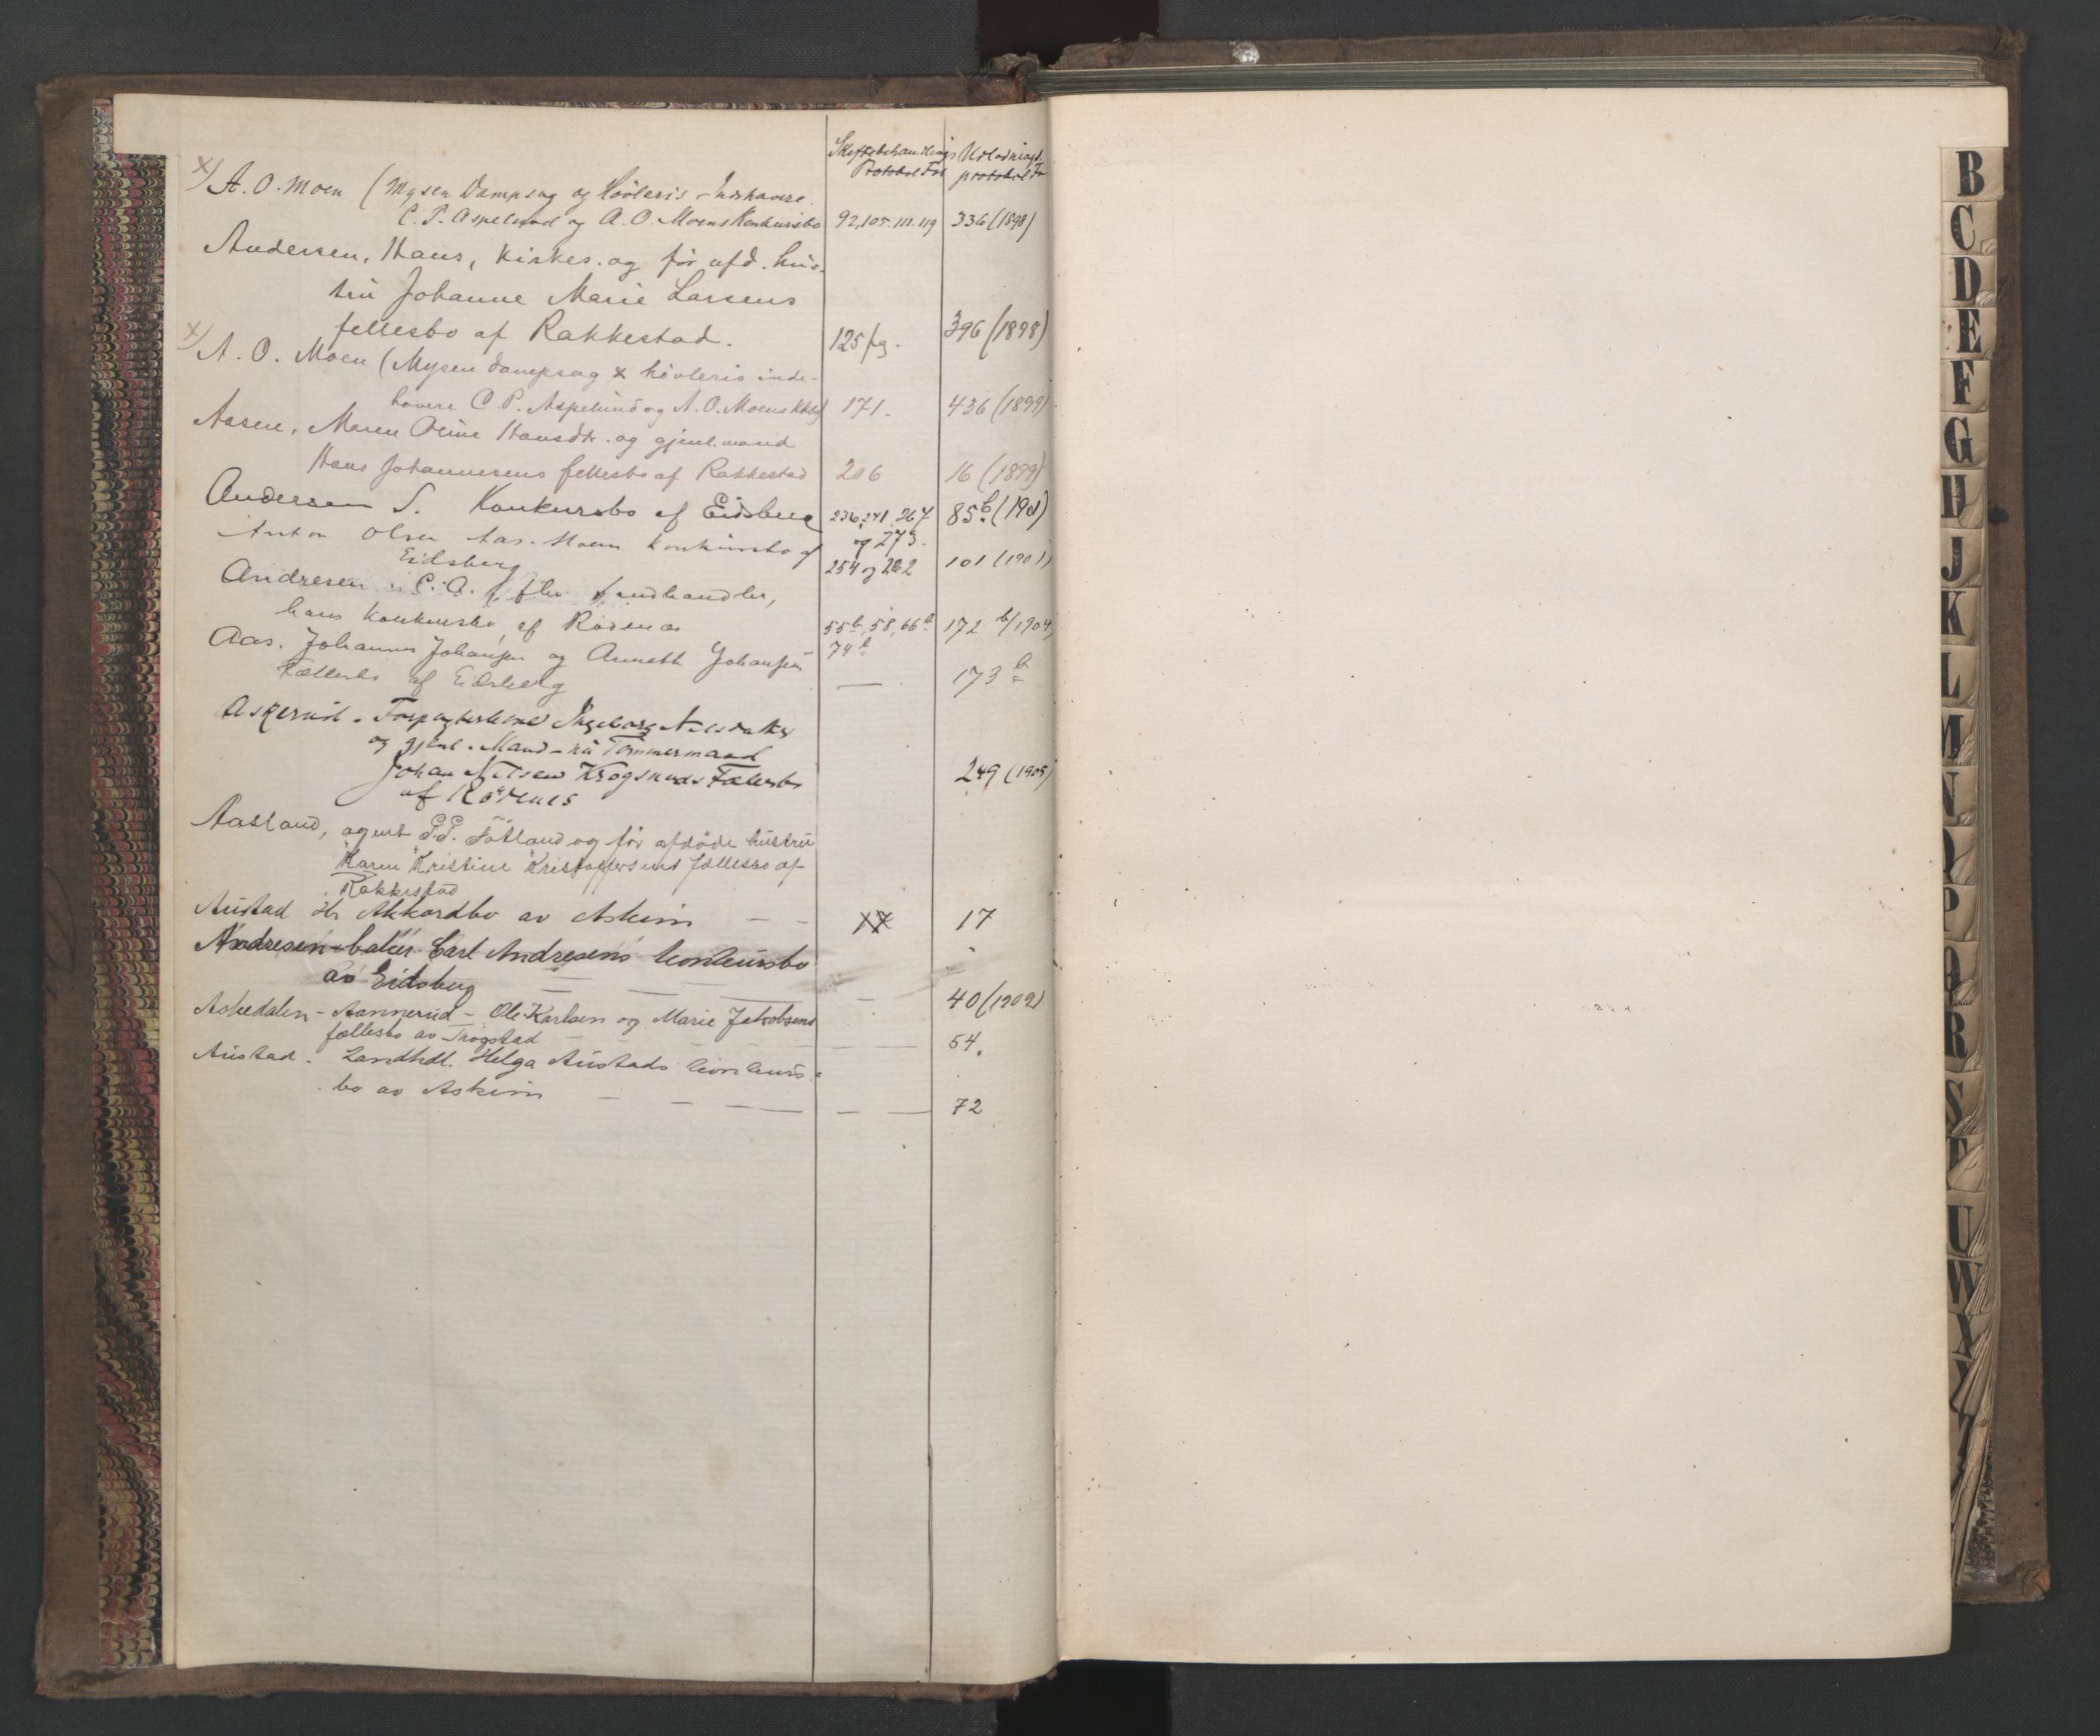 Skiftebehandlings Utlodnings-
Protokol Fol protokol Fo
x) A. O. Moen (Mysen Dampsag og Høvleris Indehavere
C. P. Aspelund og A. O. Moens Konkursbo 92, 105. 111. 119 336 (1898)
Andersen, Hans, Kirkes. og før afd. hus-
tru Johanne Marie Larsens
fellesbo af Rakkestad. 125 fg. 396 (1898)
x) A. O. Moen (Mysen dampsag & høvleris inde-
havere C. P. Aspelund og A. O. Moens Kkbo) 171. 436 (1899)
Aasen, Maren Oline Hansdtr. og gjenl. mand
Hans Johannesens fellesbo af Rakkestad 206 16 (1899)
Andersen S. Konkursbo af Eidsberg 236, 241, 267 85 b. (1901)
og 273.
Anton Olsen Aas. Moen konkursbo af
Eidsberg 254 og 262 101 (1901)
Andresen C. A. Landhandler,
hans konkursbo af Rödenæs 55 b, 58, 66 b 172 b/1904
74 b
Aas. Johannes Johansen og Anneth Johansens
Fællesbo af Eidsberg — 173 b
Askerud. Ingeborg Nilsdatter
og gjenl. Mand - nu Tømmermand
Johan Nilsen Krogsruds Fællesbo 249 (1905)
af Rödenes
Aasland, agent P.P. Fötland og før afdøde hustru
Karen Kristine Kristoffersens fællesbo af
Rakkestad
Austad H Akkordbo av Askim — — 17 17
Andresen - baker Carl Andresens konkursbo
av Eidsberg — — — — 40 (1909)
Askedalen - Sannerud - Ole Karlsen og Marie Jakobsens
fællesbo av Trøgstad — — — — 54.
Austad. Landhdl. Helga Austads konkurs-
bo av Askim — — — — — — 72
B
C
D
E
F
G
H
J
K
L
M
N
O
P
Q
R
S
T
U
W
X